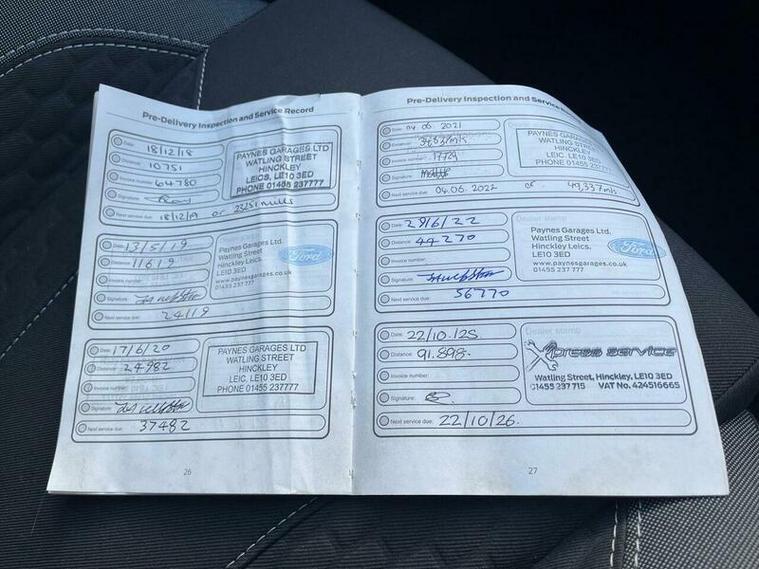 Pre-Delivery Inspection and Service Record
Date: 18/12/18
Distance: 10751
Invoice number: 64780
Signature:
Next service due: 18/12/19 or 23251 miles
PAYNES GARAGES LTD
WATLING STREET
HINCKLEY
LEICS, LE10 3ED
PHONE 01455 237777
Date: 13/5/19
Distance: 11619
Invoice number:
Signature:
Next service due: 24119
Paynes Garages Ltd.
Watling Street
Hinckley Leics.
LE10 3ED
www.paynesgarages.co.uk
01455 237 777
Ford
Date: 17/6/20
Distance: 24982
Invoice number:
Signature:
Next service due: 37482
PAYNES GARAGES LTD
WATLING STREET
HINCKLEY
LEIC, LE10 3ED
PHONE 01455 237777
26
Pre-Delivery Inspection and Service
Date: 04 06 2021
Distance:
Invoice number:
Signature:
Next service due: 04.06.2022 or 49,337mls
PAYNES GARAGES
WATLING STREET
HINCKLEY
LEIC, LE10 3ED
PHONE 01455 237777
Date: 29/6/22
Distance: 44270
Invoice number:
Signature:
Next service due: 56770
Dealer stamp
Paynes Garages Ltd.
Watling Street
Hinckley Leics.
LE10 3ED
www.paynesgarages.co.uk
01455 237 777
Ford
Date: 22/10.125
Distance: 91.898.
Invoice number:
Signature:
Next service due: 22/10/26.
Dealer stamp
Xpress service
Watling Street, Hinckley, LE10 3ED
01455 237 715 VAT No. 424516665
27